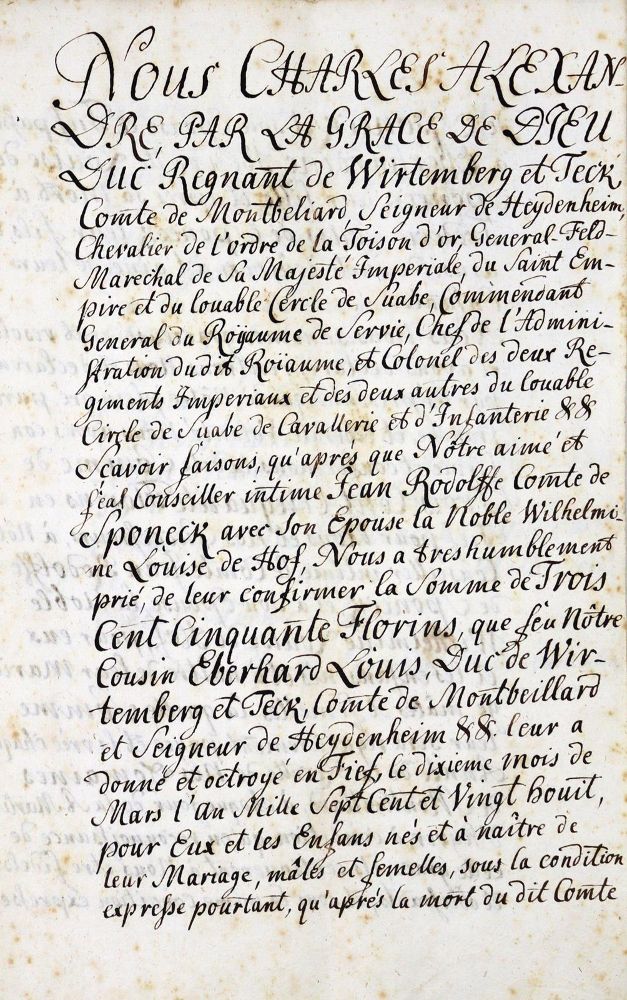 Nous CHARLES ALEXAN-
DRE, PAR LA GRACE DE DIEU
Duc Regnant de Wirtemberg et Teck
Comte de Montbeliard, Seigneur de Heydenheim,
Chevalier de l'ordre de la Toison d'or, General-Feld-
Marechal de Sa Majesté Imperiale, du Saint Em-
pire et du louable Cercle de Suabe, Commendant
General du Royaume de Servie, Chef de l'Admini-
stration du dit Roiaume, et Colonel des deux Re-
giments Imperiaux et des deux autres du louable
Circle de Suabe de Cavallerie et d'Infanterie &&
Scavoir faisons, qu'aprés que Nôtre aimé et
féal Conseiller intime Jean Rodolffe Comte de
Sponeck avec son Epouse la Noble Wilhelmi-
ne Louise de Hof, Nous a treshumblement
prié, de leur confirmer la Somme de Trois
Cent Cinquante Florins, que feu Nôtre
Cousin Eberhard Louis, Duc de Wir-
temberg et Teck, Comte de Montbeillard
et Seigneur de Heydenheim && leur a
donné et octroyé en Fief, le dixieme mois de
Mars l'an Mille Sept Cent et Vingt houit,
pour Eux et les Enfans nés et à naître de
leur Mariage, mâles et femelles, sous la condition
expresse pourtant, qu'aprés la mort du dit Comte